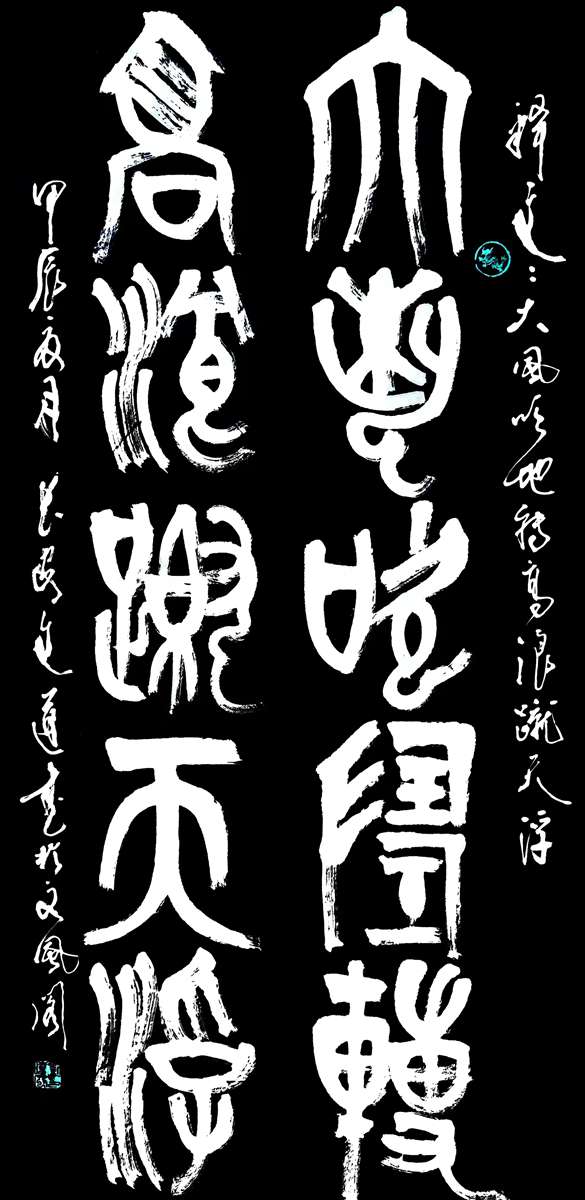 释文:大風吹地转高浪蹴天浮
大風吹地轉
高浪蹴天浮
甲辰夏月遵書於文風阁